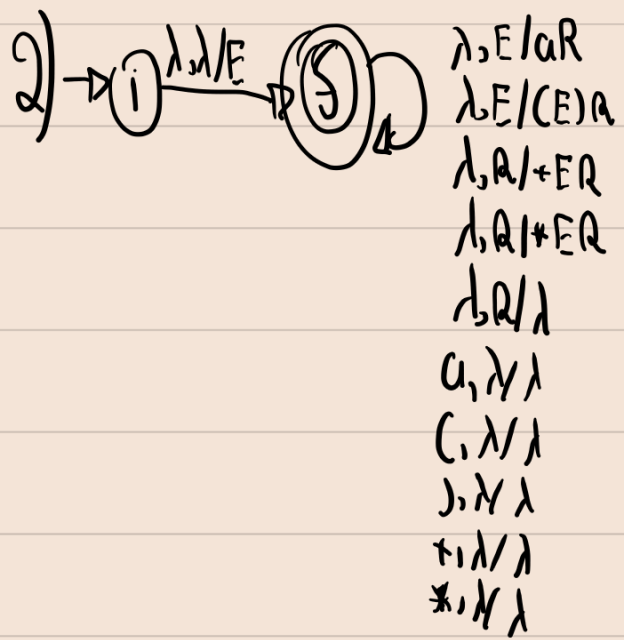 2) i λ,λ/E f
λ,E/aR
λ,E/(E)R
λ,R/+ER
λ,R/*ER
λ,R/λ
a,λ/λ
(,λ/λ
),λ/λ
+,λ/λ
*,λ/λ